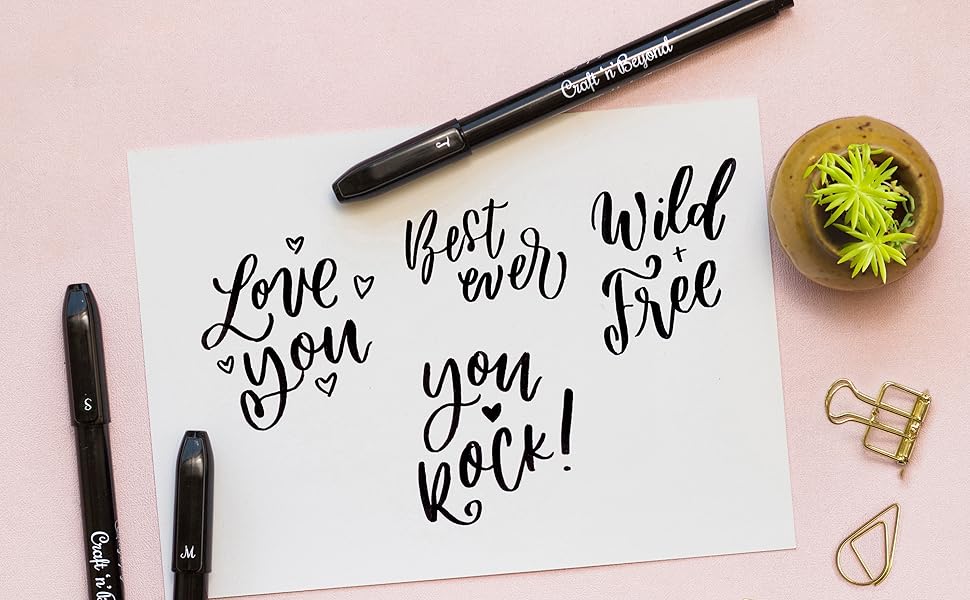 Craft 'n' Beyond
Best
ever
Wild
+
Free
Love
you
you
Rock!
S
M
Craft 'n'